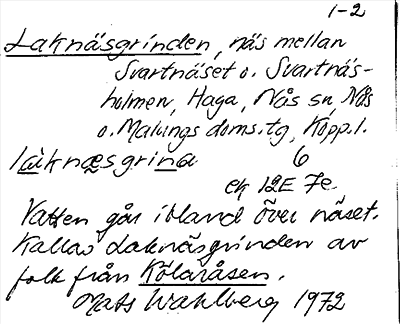 1-2
Laknäsgrinden, näs mellan
Svartnäset o. Svartnäs-
holmen, Haga, Nås sn, Nås
o. Malungs doms.tg, Kopp.l.
làknæsgrina 6
ek 12E 7e.
Vatten går ibland över näset.
Kallas Laknäsgrinden av
folk från Kölaråsen.
Mats Wahlberg 1972